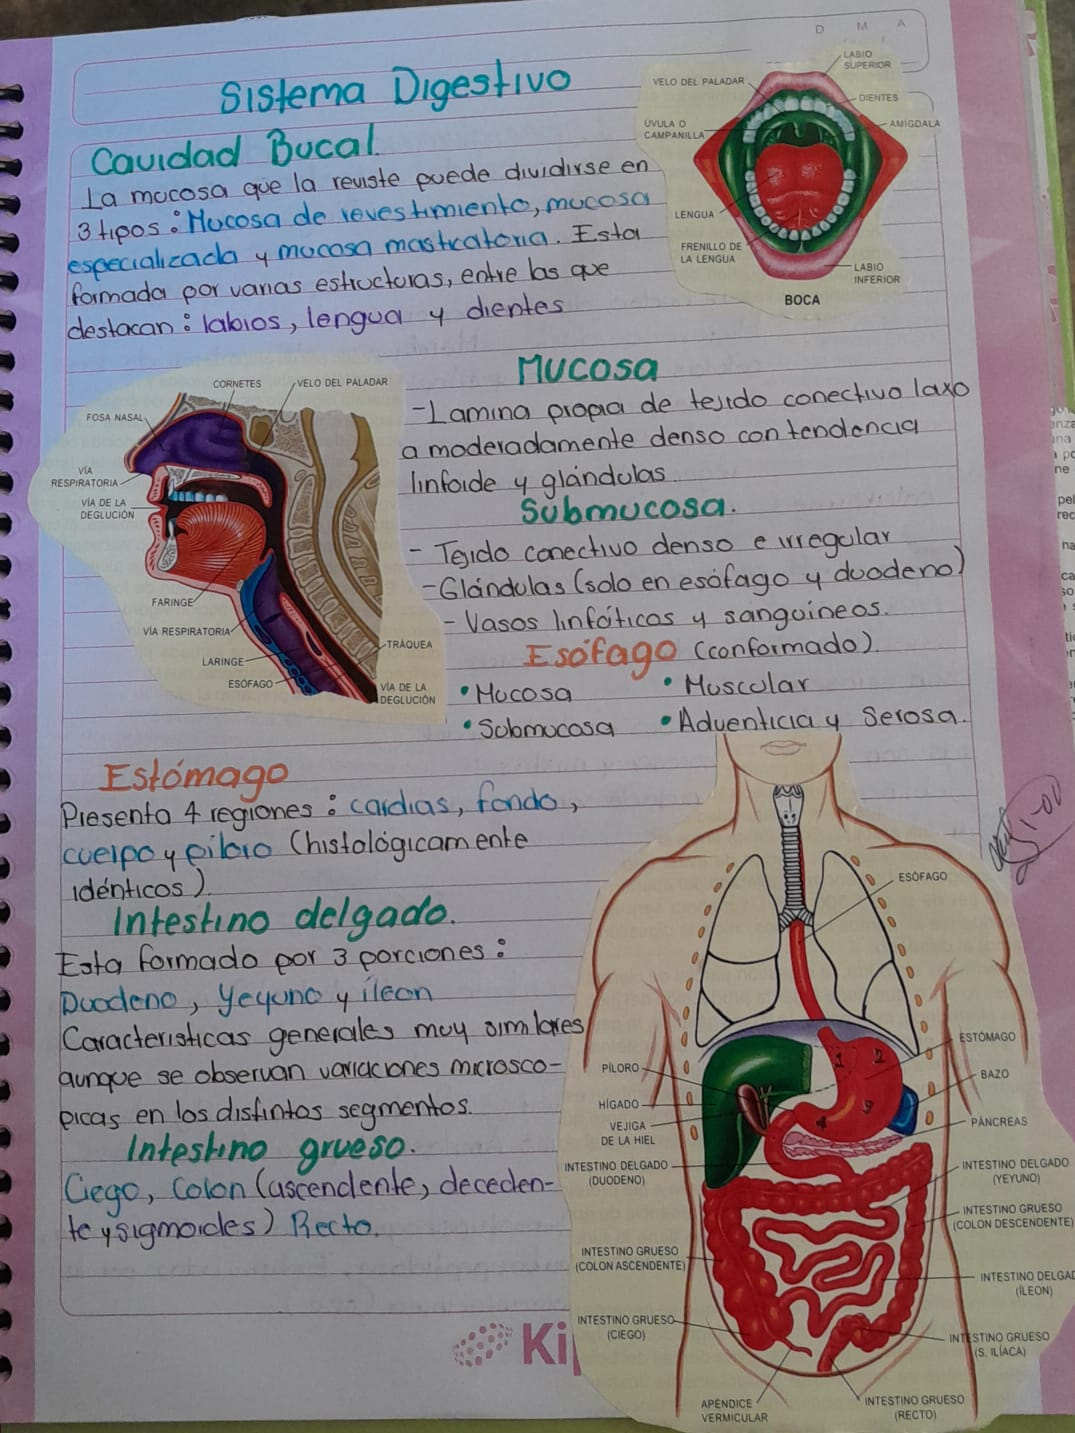 D M A
Sistema Digestivo
Cavidad Bucal.
La mucosa que la reviste puede dividirse en
3 tipos : Mucosa de revestimiento, mucosa
especializada y mucosa masticatoria. Esta
formada por varias estructuras, entre las que
destacan : labios, lengua y dientes
LABIO
SUPERIOR
VELO DEL PALADAR
DIENTES
ÚVULA O
CAMPANILLA
AMÍGDALA
LENGUA
FRENILLO DE
LA LENGUA
LABIO
INFERIOR
BOCA
CORNETES
VELO DEL PALADAR
FOSA NASAL
VÍA
RESPIRATORIA
VÍA DE LA
DEGLUCIÓN
FARINGE
VÍA RESPIRATORIA
LARINGE
ESÓFAGO
TRÁQUEA
VÍA DE LA
DEGLUCIÓN
Mucosa
-Lamina propia de tejido conectivo laxo
a moderadamente denso con tendencia
linfoide y glándulas.
Submucosa.
- Tejido conectivo denso e irregular
-Glándulas (solo en esófago y duodeno)
- Vasos linfáticos y sanguineos.
Esófago (conformado).
• Mucosa • Muscular
• Submucosa • Adventicia y Serosa.
Estómago
Presenta 4 regiones : cardias, fondo,
cuerpo y piloro (histológicamente
idénticos).
Intestino delgado.
Esta formado por 3 porciones :
Duodeno, Yeyuno y íleon
Caracteristicas generales muy similares
aunque se observan variaciones microsco-
picas en los distintos segmentos.
Intestino grueso.
Ciego, Colon (ascendente, deceden-
te y sigmoides) Recto.
ESÓFAGO
ESTÓMAGO
PÍLORO
BAZO
HÍGADO
PÁNCREAS
VEJIGA
DE LA HIEL
INTESTINO DELGADO
(DUODENO)
INTESTINO DELGADO
(YEYUNO)
INTESTINO GRUESO
(COLON DESCENDENTE)
INTESTINO GRUESO
(COLON ASCENDENTE)
INTESTINO DELGAD
(ÍLEON)
INTESTINO GRUESO
(CIEGO)
INTESTINO GRUESO
(S. ILÍACA)
APÉNDICE
VERMICULAR
INTESTINO GRUESO
(RECTO)
1 2
4 3
Ki